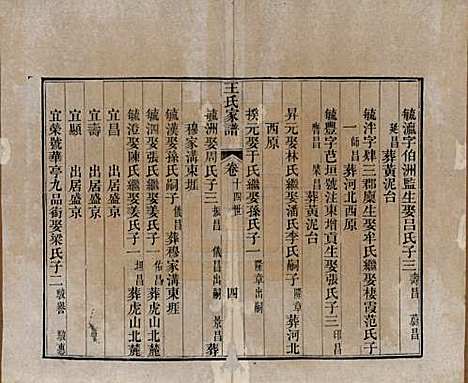 毓瀛字伯洲監生娶呂氏子三 壽昌 蔚昌
延昌 葬黃泥台
毓泮字肄三郡廩生娶牟氏繼娶棲霞范氏子
一 師昌 葬河北西原
毓豐字芑垣號注東增貞生娶張氏子三 印昌
魯昌 榮昌 葬黃泥台
昇元娶林氏繼娶潘氏李氏嗣子 隆章 葬河北
西原
揆元娶于氏繼娶孫氏子一 隆章出嗣
王氏家譜 卷 十四世 四
毓洲娶周氏子三 振昌 儀昌出嗣 景昌 葬
穆家溝東堐
毓漢娶孫氏嗣子 儀昌 葬穆家溝東堐
毓泗娶張氏繼娶姜氏子一 佑昌 葬虎山北麓
毓澄娶陳氏繼娶姜氏子一 坦昌 葬虎山北麓
宜昌 出居盛京
宜壽 出居盛京
宜顯 出居盛京
宜榮號華亭九品銜娶梁氏子二 駿譽 駿惠